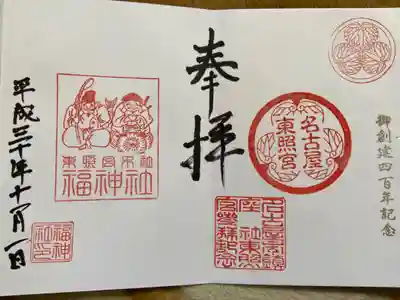 御創建四百年記念
名古屋
東照宮
奉拝
東照宮末社
福神社
平成三十年十一月一日
福神
社印